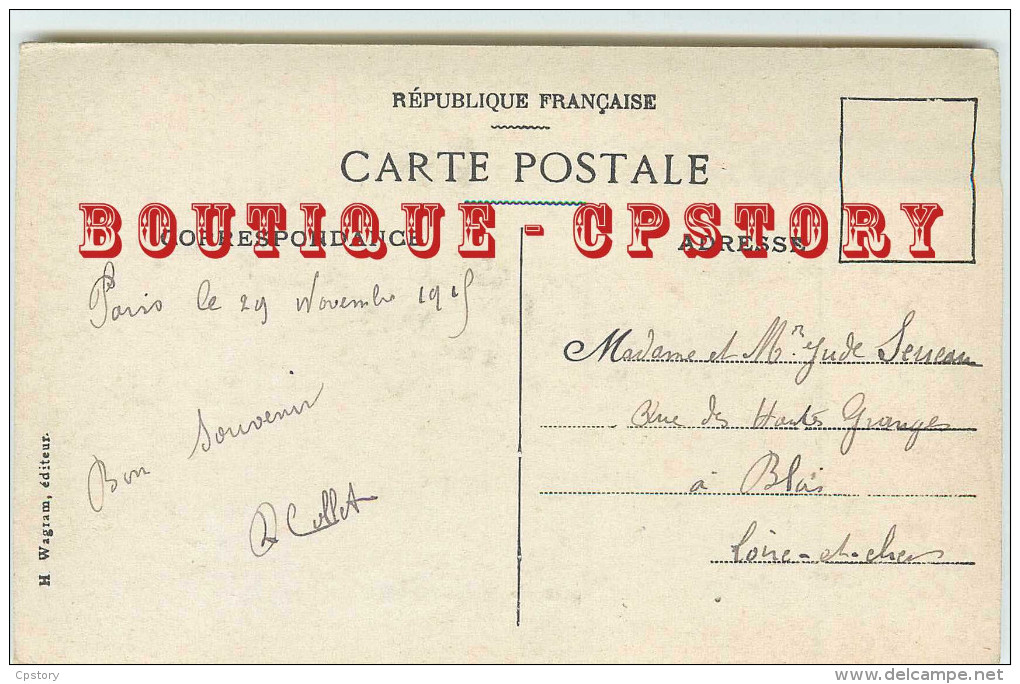 RÉPUBLIQUE FRANÇAISE
CARTE POSTALE
BOUTIQUE - CPSTORY
CORRESPONDANCE
ADRESSE
Paris le 29 Novembre 1915
Bon Souvenir
R Collet
Madame et Mr Jude
Rue des Hautes Granges
à Blois
Loire-et-cher
H Wagram, éditeur.
Cpstory
www.delcampe.net